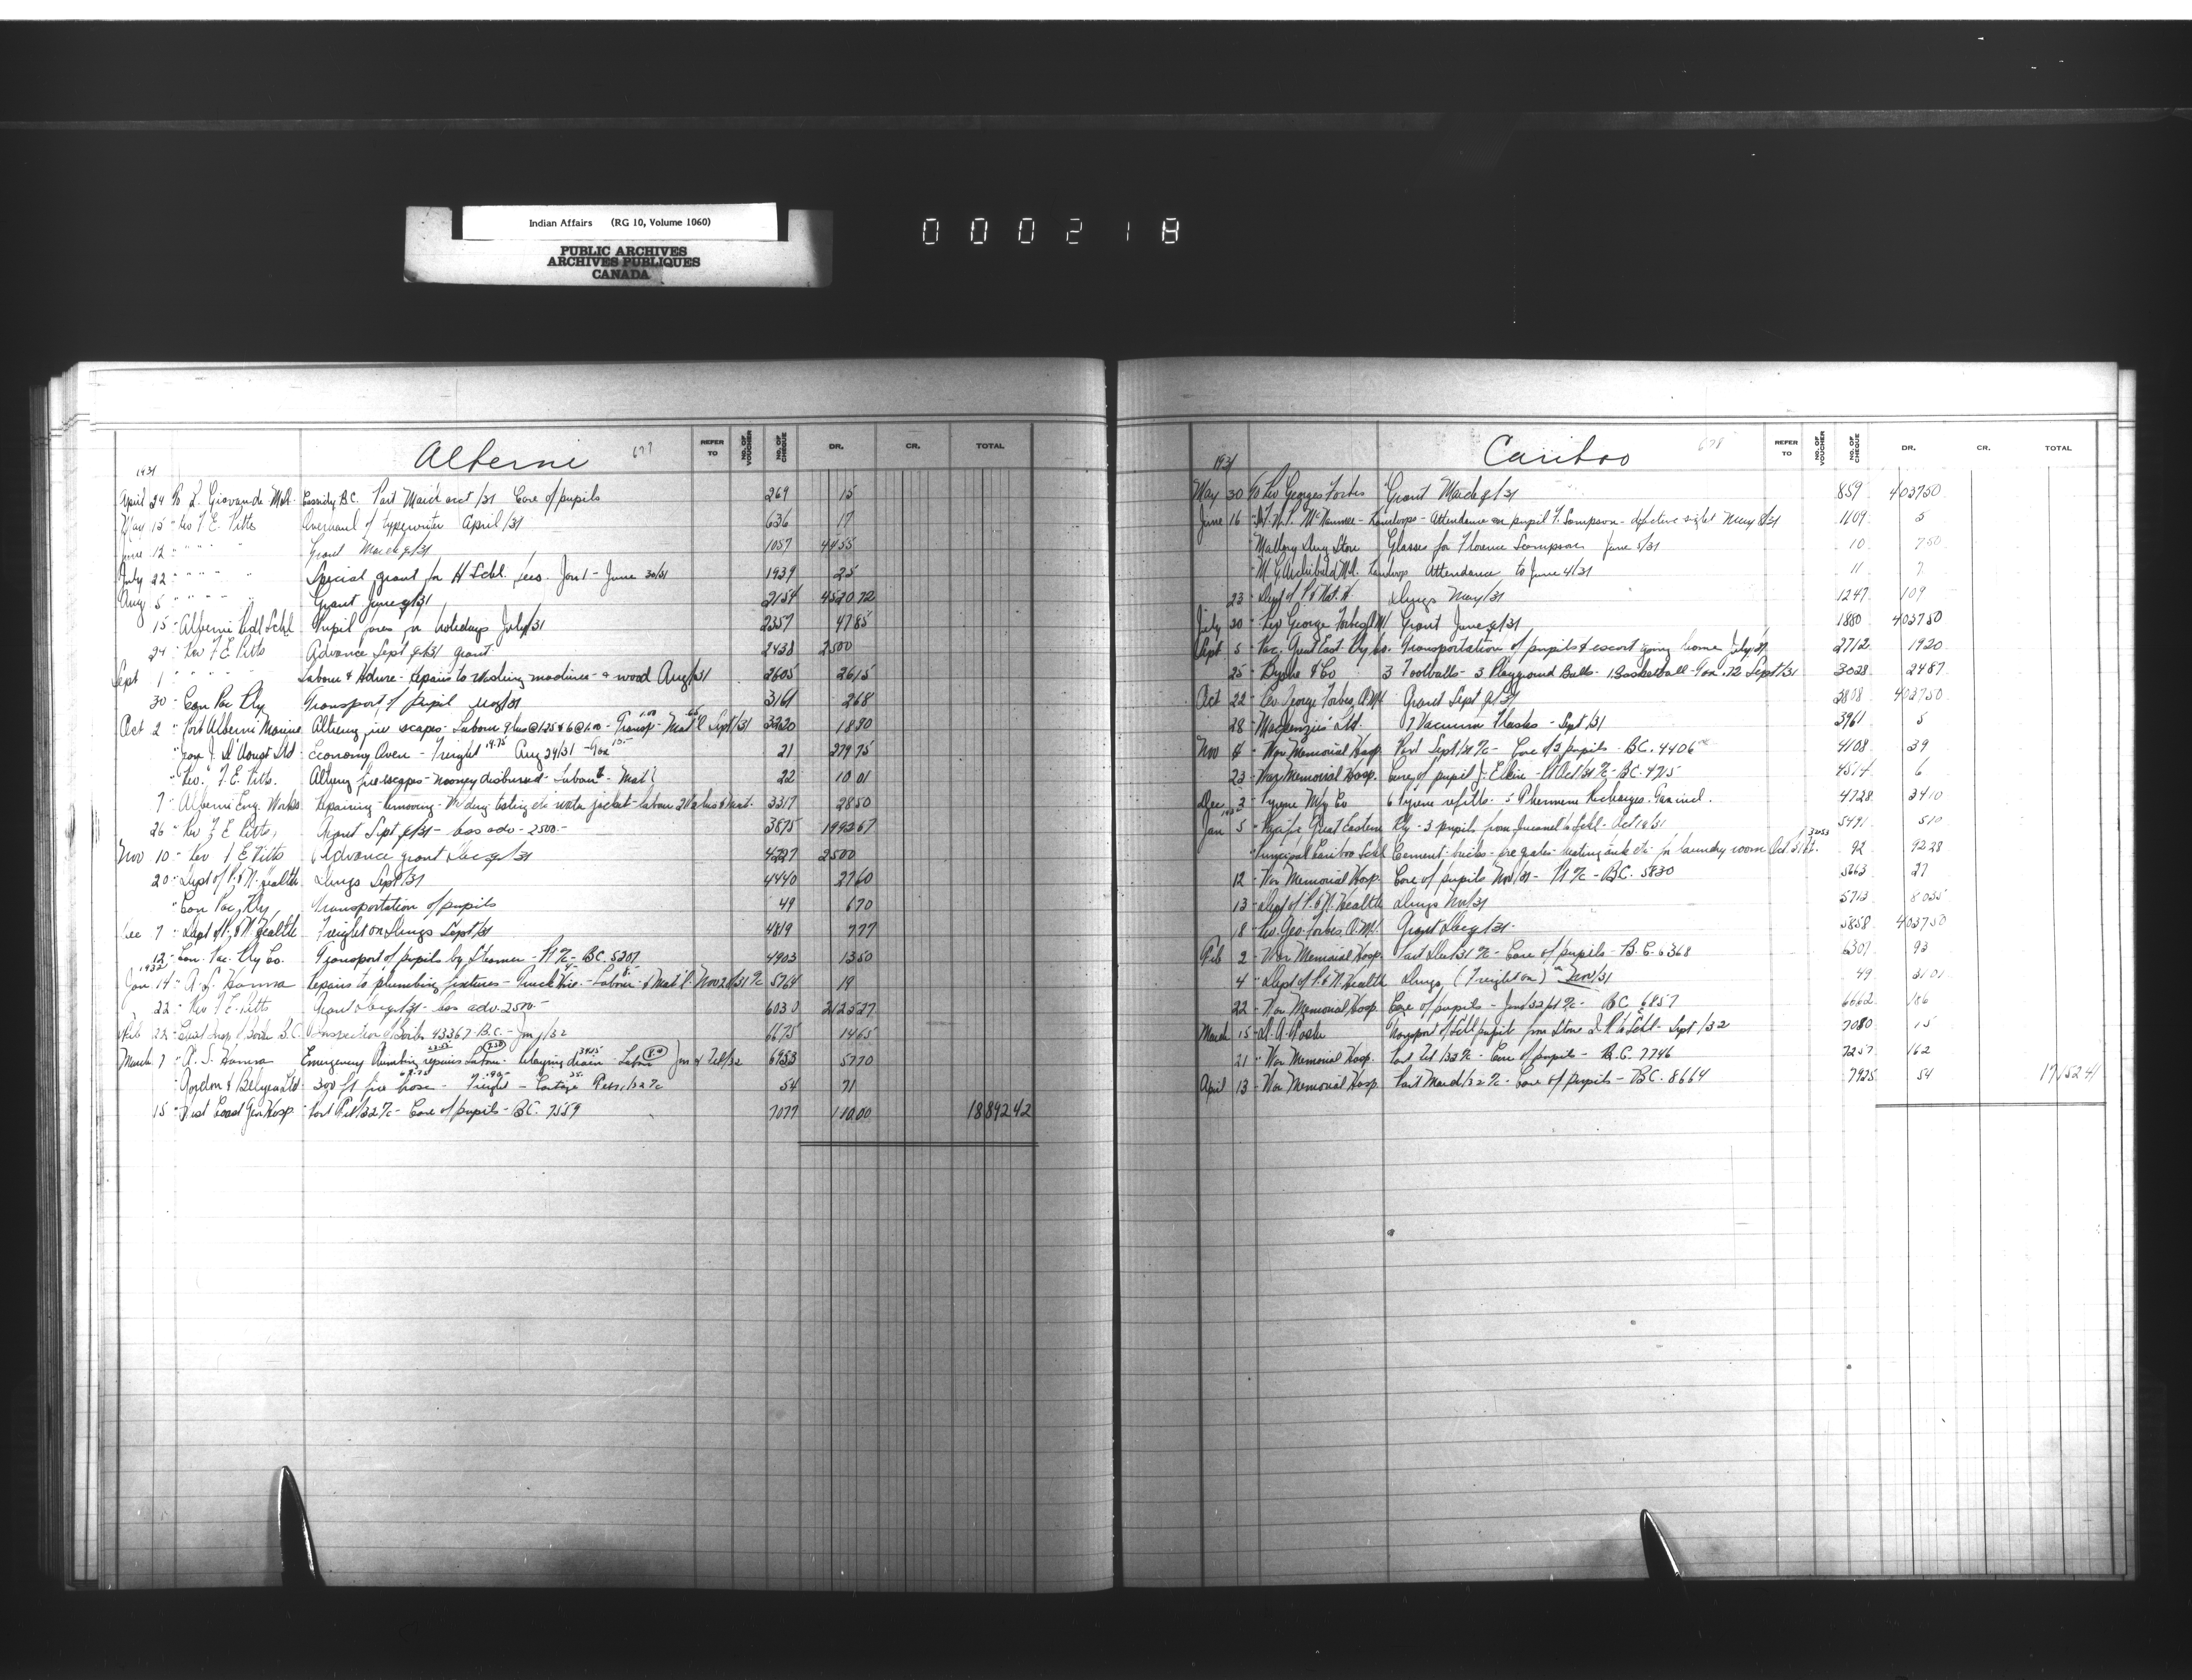 Indian Affairs (RG 10, Volume 1060)
PUBLIC ARCHIVES
ARCHIVES PUBLIQUES
CANADA
000218
Alberni
REFER TO NO. OF VOUCHER NO. OF CHEQUE DR. CR. TOTAL
1931
April 24 Cassidy B.C. Part March acct/31 Care of pupils 269 15
May 15 " Rev F E Pitts Overhaul of typewriter April/31 636 17
June 12 " " " " Grant March q/31 1057 4455
July 22 " " " " Special grant for H Schl. fees. Jan 1 - June 30/31 1939 25
Aug 5 " " " " Grant June q/31 2154 4520 72
15 " Alberni Rdl Schl Pupil fares for holidays July/31 2357 47 85
24 " Rev F E Pitts Advance Sept q/31 grant 2438 2500
Sept 1 " " " Labour & - Repairs to washing machines - & wood Aug/31 2605 26 15
30 " Can Pac Rly Transport of pupil Aug/31 3161 2 68
Oct 2 " Port Alberni Marine Altering fire scapes - Labour 9 hrs @ 1.25 & 6 @ 1.00 - Transp - Mat'l Sept/31 3220 18 80
" Economy Oven - Freight 19.75 Aug 24/31 - Tax 21 279 75
" Rev. F. E. Pitts. Altering fire escapes - money disbursed - Labour & Mat'l 22 10 01
7 " Alberni Eng. Works Repairing - removing - Welding water jacket - labour & mat. 3317 28 50
26 " Rev F E Pitts, Grant Sept q/31 - less adv - 2500 - 3875 1992 67
Nov 10 " Rev F E Pitts Advance grant Dec q/31 4227 2500
20 " Dept of P. & N. Health Drugs Sept/31 4440 27 60
" Can Pac Rly, Transportation of pupils 49 6 70
Dec 7 " Dept of P. & N Health Freight on Drugs Sept/31 4819 7 77
12 " Can. Pac. Rly Co. Transport of pupils by Steamer - Pt % - BC. 5207 4903 13 50
1932
Jan 14 " Hanna Repairs to plumbing fixtures - Truck Hire - Labour - & Mat'l - Nov 28/31 % 5764 19
22 " Rev F E Pitts Grant Dec q/31 - less adv. 2500 - 6030 2125 27
Feb Inspection of Boiler 43367 B.C. - Jan /32 6675 14 65
March 7 " Hanna Emergency Plumbing repairs Labour - Relaying drain - Labour Jan & Feb/32 6953 57 70
" Gordon & Belyea Ltd 300 ft fire hose - Freight - Cartage 54 71
15 " West Coast Gen Hosp Part Feb/32 % - Care of pupils - BC. 7559 7077 110.00 18842 42
Cariboo
REFER TO NO. OF VOUCHER NO. OF CHEQUE DR. CR. TOTAL
1931
May 30 To Rev Georges Forbes Grant March q/31 859 4037 50
June 16 - Kamloops - Attendance on pupil F. Sampson - defective sight May 8/31 1109 5
Mallory Drug Store Glasses for Florence Sampson June 1/31 10 7 50
" M. G. Archibald M.D. Kamloops Attendance to June 4/31 11 7
23 " Dept of P. & Nat. H. Drugs May/31 1247 109
July 30 " Rev George Forbes O.M.I. Grant June q/31 1880 4037 50
Sept 5 " Pac. Great East. Rly Co. Transportation of pupils & escort going home July/31 2712 19 20
25 " Byshe & Co 3 Footballs - 3 Playground Balls - 1 Basketball - Tax .72 Sept/31 3028 24 87
Oct 22 " Rev George Forbes O.M.I. Grant Sept q/31 3808 4037 50
28 " Mackenzies Ltd. 7 Vacuum Flasks - Sept/31 3961 5
Nov " War Memorial Hosp. Part Sept/31 % - Care of 2 pupils - B.C. 4406 4108 39
23 " War Memorial Hosp. Care of pupil J. Elkin - Pt Oct/31 % - B.C. 4715 4514 6
Dec 2 " Pyrene Mfg Co 6 Pyrene refills - 5 Phomene Recharges. Tax incl. 4728 34 10
1932
Jan 5 " Pacific Great Eastern Rly - 3 pupils from Quesnel to Schl - Oct 19/31 5491 5 10
" Principal Cariboo Schl Cement - bricks - fire grates - heating tank etc for laundry room Oct 92 92 28
12 " War Memorial Hosp. Care of pupils Nov/31 - Pt % - B.C. 5830 5663 27
13 " Dept of P. & N. Health Drugs Nov/31 5713 80 35
18 " Rev. Geo. Forbes, O.M.I. Grant Dec q/31 - 5858 4037 50
Feb 2 " War Memorial Hosp. Part Dec/31 % - Care of pupils - B.C. 6368 6301 93
4 " Dept of P. & N. Health Drugs (Freight on) Nov/31 49 31 01
22 " War Memorial Hosp. Care of pupils - Jan/32 Pt % - BC 6857 6662 186
March 15 " Transport of Schl pupil from to Schl - Sept /32 7080 15
21 " War Memorial Hosp. Part Feb/32 % - Care of pupils - B.C. 7746 7257 162
April 13 " War Memorial Hosp. Part March/32 % - Care of pupils - BC. 8664 7925 54 17152 41